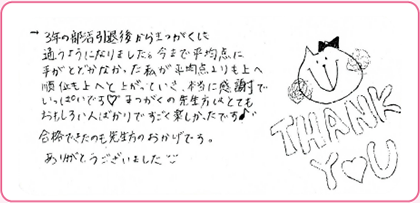 → 3年の部活引退後からまつがくに
通うようになりました。今まで平均点に
手がとどかなかった私が平均点よりも上へ
順位も上へと上がっていき、本当に感謝で
いっぱいです♡ まつがくの先生方はとても
おもしろい人ばかりですごく楽しかったです♪
合格できたのも先生方のおかげです。
ありがとうございました
THANK
YOU